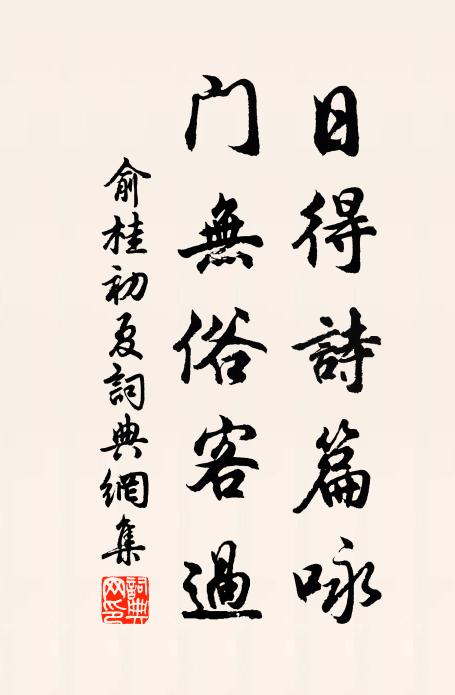 日得詩篇咏
门無俗客過
俞桂初夏詞典網集
詞典网印